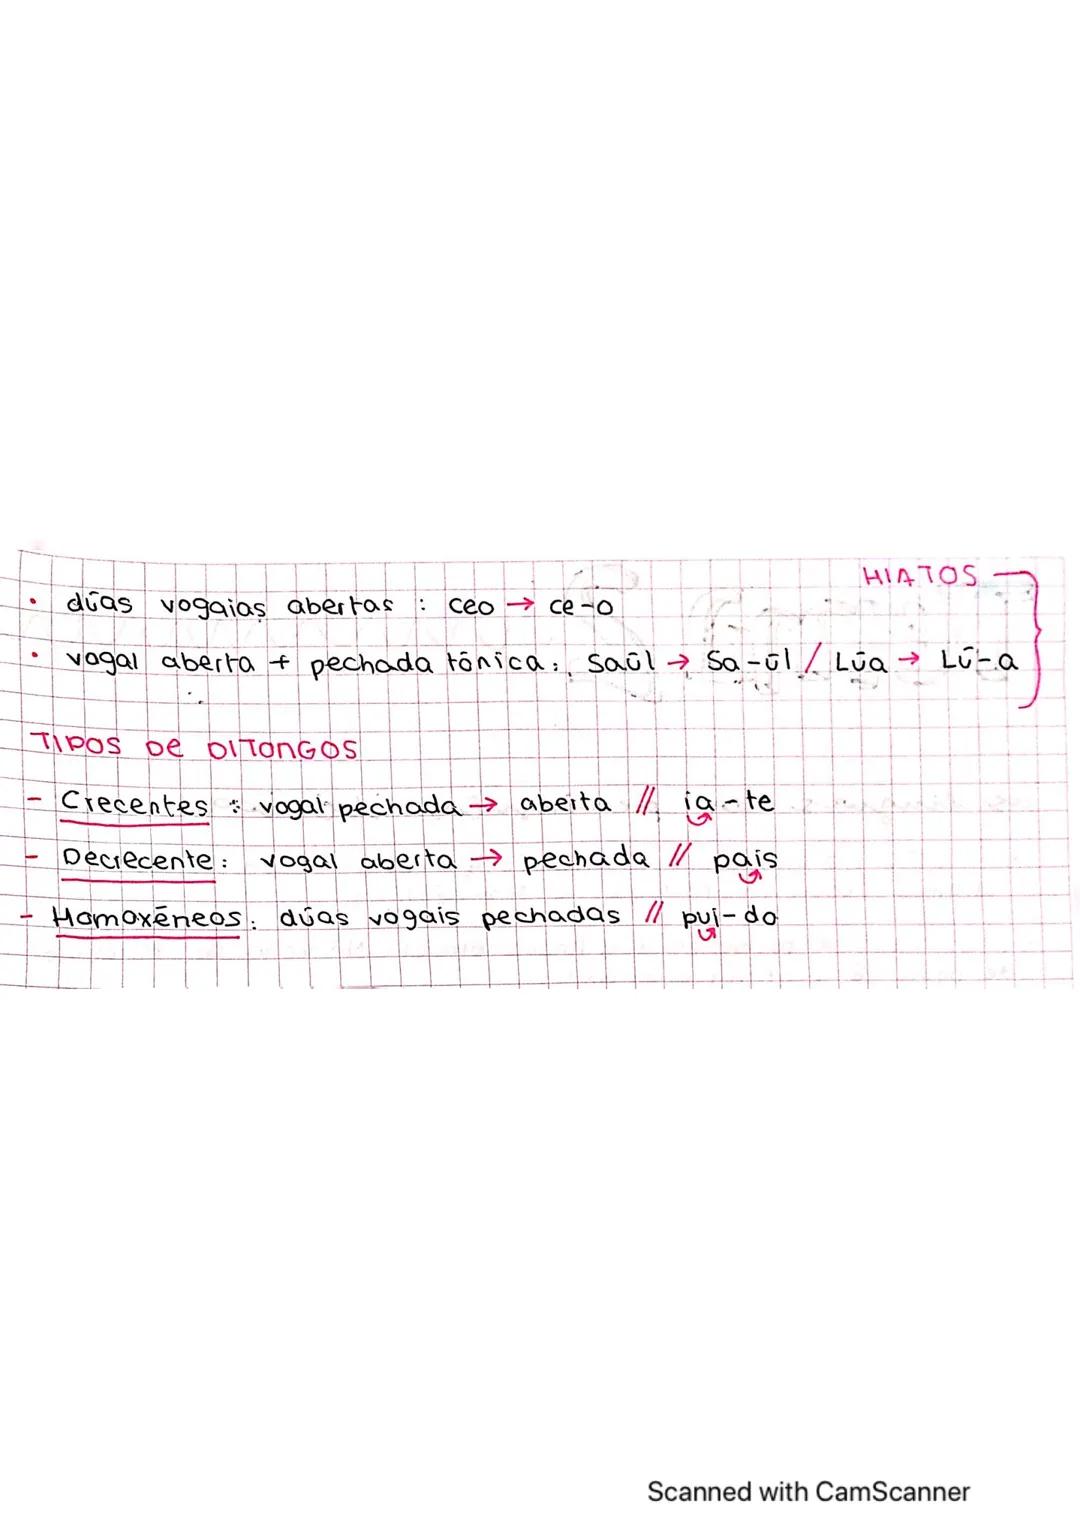 HIATOS
• dúas vogaias abertas : ceo → ce-o
• vogal aberta + pechada tónica: Saúl → Sa-úl / Lúa → Lú-a
TIPOS DE DITONGOS
- Crecentes : vogal pechada → aberta // ia-te
- Decrecente : vogal aberta → pechada // pais
- Homoxéneos : dúas vogais pechadas // pui-do
Scanned with CamScanner